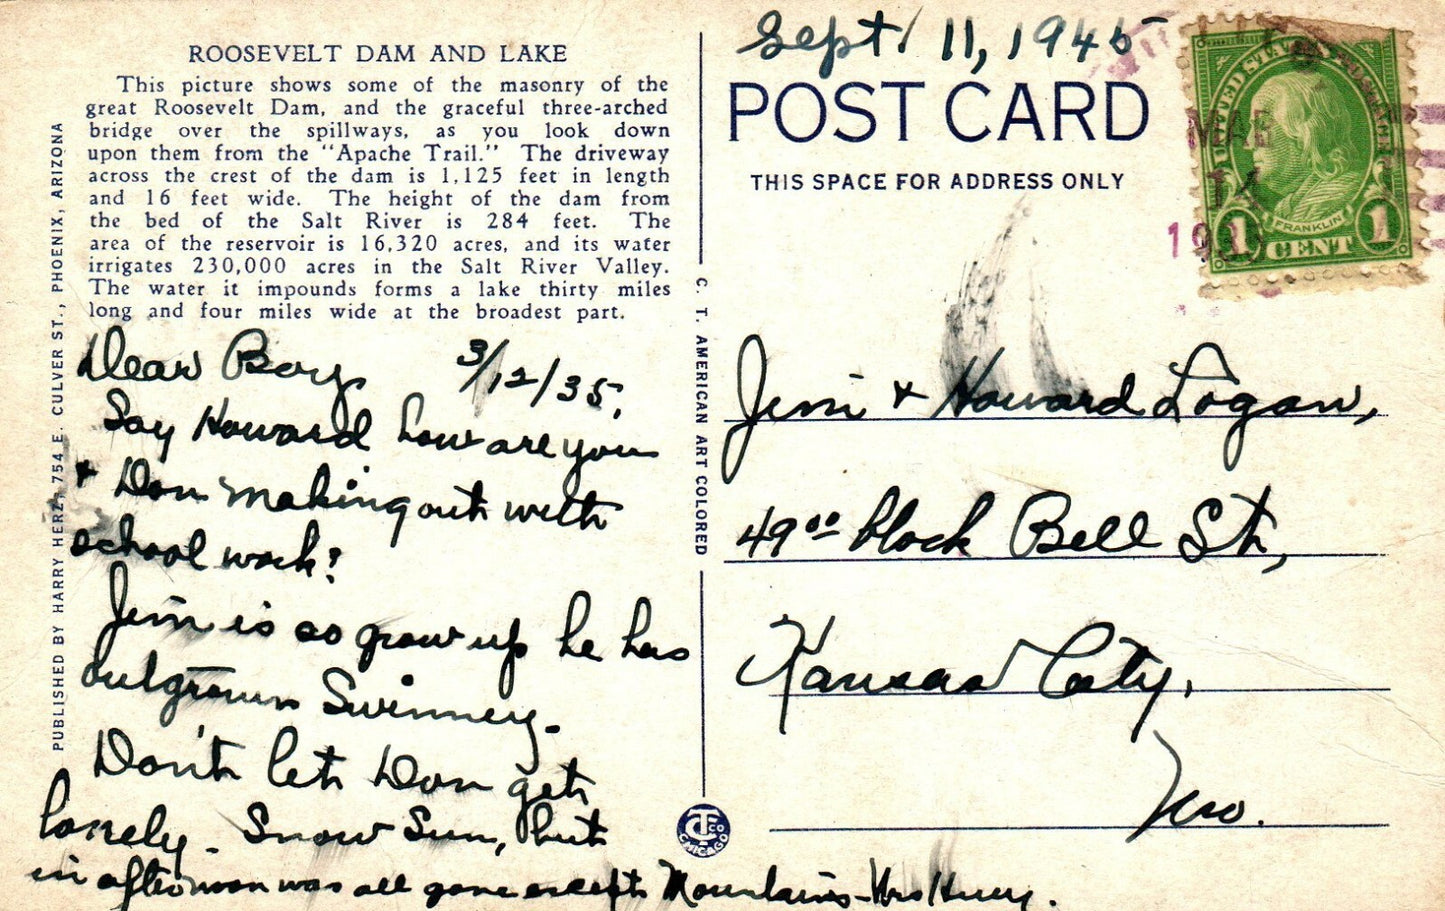 ROOSEVELT DAM AND LAKE
This picture shows some of the masonry of the
great Roosevelt Dam, and the graceful three-arched
bridge over the spillways, as you look down
upon them from the "Apache Trail." The driveway
across the crest of the dam is 1,125 feet in length
and 16 feet wide. The height of the dam from
the bed of the Salt River is 284 feet. The
area of the reservoir is 16,320 acres, and its water
irrigates 230,000 acres in the Salt River Valley.
The water it impounds forms a lake thirty miles
long and four miles wide at the broadest part.
PUBLISHED BY HARRY HERZ, 754 E. CULVER ST., PHOENIX, ARIZONA
Dear Boys 3/12/35.
Say Howard how are you
+ Don making out with
school work?
Jim is so grow up he has
outgrown Swinney.
Don't let Don get
lonely. Snow Sun, but
in afternoon was all gone except Mountains - Mrs
C. T. AMERICAN ART COLORED
CT CO
CHICAGO
Sept. 11, 1945
POST CARD
THIS SPACE FOR ADDRESS ONLY
UNITED STATES POSTAGE
FRANKLIN
1 CENT 1
MAR
Jim + Howard Logan,
49oo block Bell St,
Kansas City,
Mo.